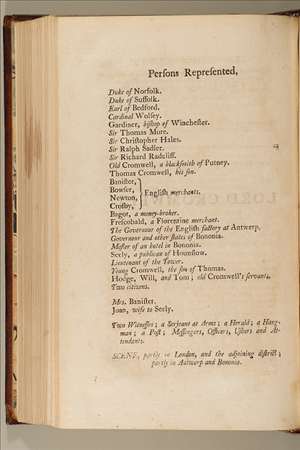 Persons Represented.
Duke of Norfolk.
Duke of Suffolk.
Earl of Bedford.
Cardinal Wolsey.
Gardiner, bishop of Winchester.
Sir Thomas More.
Sir Christopher Hales.
Sir Ralph Sadler.
Sir Richard Radcliff.
Old Cromwell, a blacksmith of Putney.
Thomas Cromwell, his son.
Banister,
Bowser,
Newton,
Crosby,
English merchants.
Bagot, a money-broker.
Frescobald, a Florentine merchant.
The Governour of the English factory at Antwerp.
Governour and other states of Bononia.
Master of an hotel in Bononia.
Seely, a publican of Hounslow.
Lieutenant of the Tower.
Young Cromwell, the son of Thomas.
Hodge, Will, and Tom; old Cromwell's servants.
Two citizens.
Mrs. Banister.
Joan, wife to Seely.
Two Witnesses; a Serjeant at Arms; a Herald; a Hang-
man; a Post; Messengers, Officers, Ushers and At-
tendants.
SCENE, partly in London, and the adjoining district;
partly in Antwerp and Bononia.